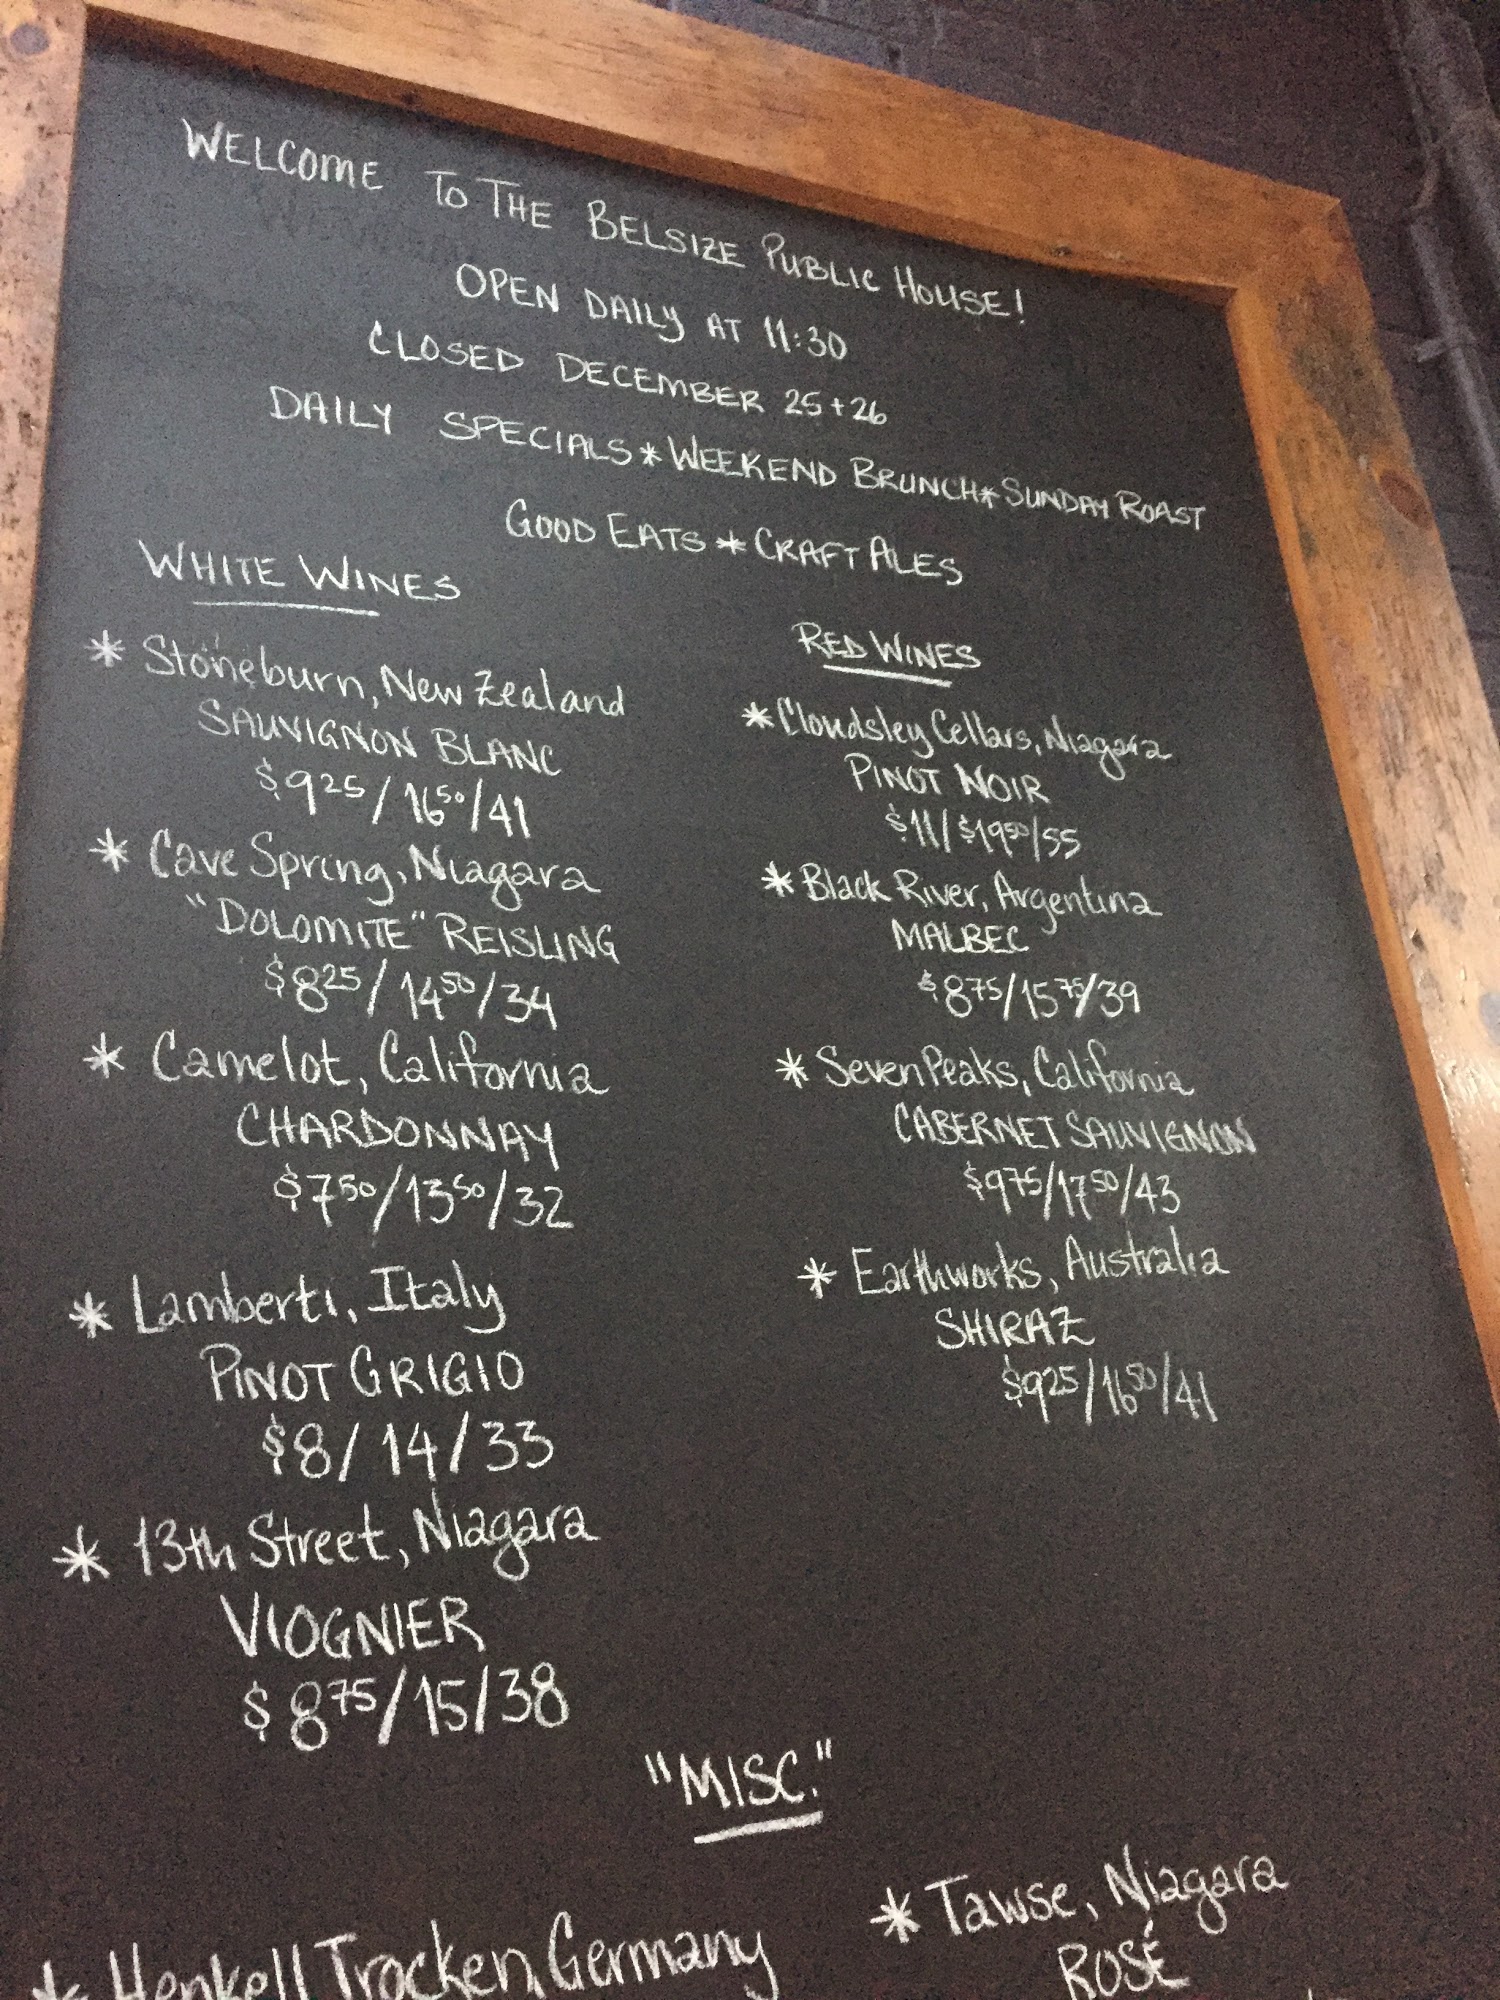 WELCOME TO THE BELSIZE PUBLIC HOUSE!
OPEN DAILY AT 11:30
CLOSED DECEMBER 25+26
DAILY SPECIALS * WEEKEND BRUNCH * SUNDAY ROAST
GOOD EATS * CRAFT ALES
WHITE WINES
* Stoneburn, New Zealand
SAUVIGNON BLANC
$9 25/16 50/41
* Cave Spring, Niagara
"DOLOMITE" REISLING
$8 25/14 50/34
* Camelot, California
CHARDONNAY
$7 50/13 50/32
* Lamberti, Italy
PINOT GRIGIO
$8/14/33
* 13th Street, Niagara
VIOGNIER
$8 75/15/38
RED WINES
* Cloudsley Cellars, Niagara
PINOT NOIR
$11/$19 50/55
* Black River, Argentina
MALBEC
$8 75/15 75/39
* Seven Peaks, California
CABERNET SAUVIGNON
$9 75/17 50/43
* Earthworks, Australia
SHIRAZ
$9 25/16 50/41
"MISC."
* Henkell Trocken, Germany
* Tawse, Niagara
ROSÉ